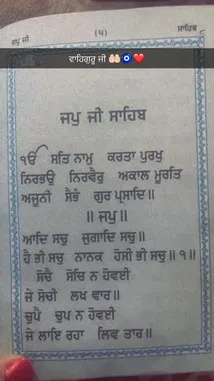 ਜਪੁ ਜੀ (੫) ਸਾਹਿਬ
ਵਾਹਿਗੁਰੂ 🙏🏻🧿❤️
ਜਪੁ ਜੀ ਸਾਹਿਬ
ੴ ਸਤਿ ਨਾਮੁ ਕਰਤਾ ਪੁਰਖੁ
ਨਿਰਭਉ ਨਿਰਵੈਰੁ ਅਕਾਲ ਮੂਰਤਿ
ਅਜੂਨੀ ਸੈਭੰ ਗੁਰ ਪ੍ਰਸਾਦਿ॥
॥ ਜਪੁ॥
ਆਦਿ ਸਚੁ ਜੁਗਾਦਿ ਸਚੁ॥
ਹੈ ਭੀ ਸਚੁ ਨਾਨਕ ਹੋਸੀ ਭੀ ਸਚੁ॥੧॥
ਸੋਚੈ ਸੋਚਿ ਨ ਹੋਵਈ
ਜੇ ਸੋਚੀ ਲਖ ਵਾਰ॥
ਚੁਪੈ ਚੁਪ ਨ ਹੋਵਈ
ਜੇ ਲਾਇ ਰਹਾ ਲਿਵ ਤਾਰ॥